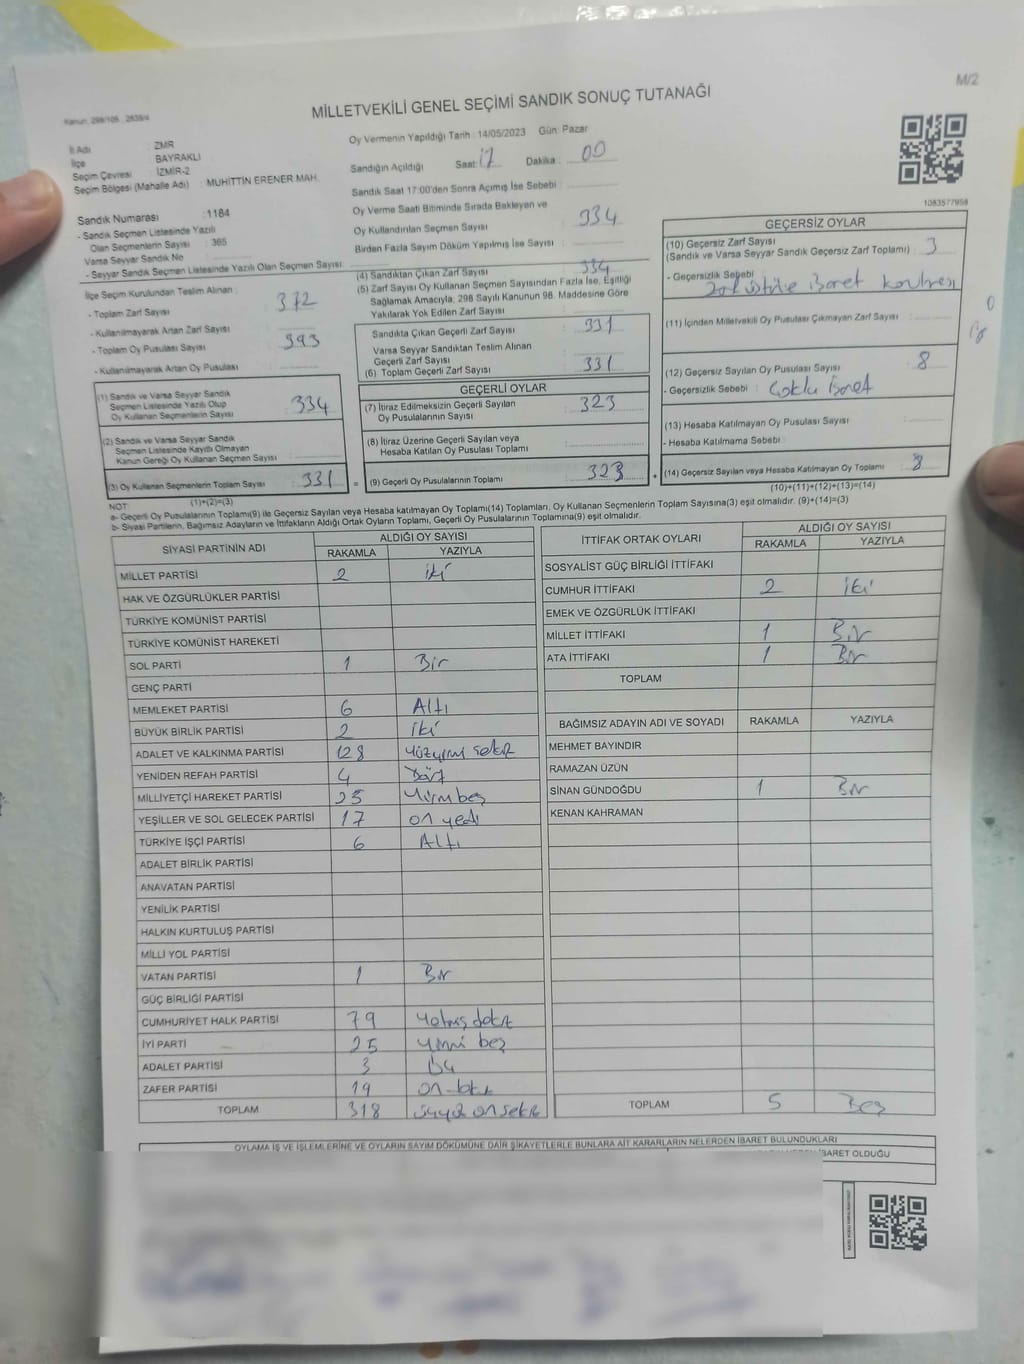 M/2
MİLLETVEKİLİ GENEL SEÇİMİ SANDIK SONUÇ TUTANAĞI
Kanun: 298/105 , 2839/4
İl Adı : ZMR
İlçe : BAYRAKLI
Seçim Çevresi : İZMİR-2
Seçim Bölgesi (Mahalle Adı) : MUHİTTİN ERENER MAH.
Sandık Numarası : 1184
- Sandık Seçmen Listesinde Yazılı
Olan Seçmenlerin Sayısı : 365
Varsa Seyyar Sandık No :
- Seyyar Sandık Seçmen Listesinde Yazılı Olan Seçmen Sayısı :
Oy Vermenin Yapıldığı Tarih : 14/05/2023 Gün: Pazar
Sandığın Açıldığı Saat: 17 Dakika : 00
Sandık Saat 17:00'den Sonra Açılmış İse Sebebi :
Oy Verme Saati Bitiminde Sırada Bekleyen ve
Oy Kullandırılan Seçmen Sayısı : 334
Birden Fazla Sayım Döküm Yapılmış İse Sayısı :
1083577958
İlçe Seçim Kurulundan Teslim Alınan :
- Toplam Zarf Sayısı : 372
- Kullanılmayarak Artan Zarf Sayısı :
- Toplam Oy Pusulası Sayısı : 393
- Kullanılmayarak Artan Oy Pusulası :
(1) Sandık ve Varsa Seyyar Sandık
Seçmen Listesinde Yazılı Olup
Oy Kullanan Seçmenlerin Sayısı : 334
(2) Sandık ve Varsa Seyyar Sandık
Seçmen Listesinde Kayıtlı Olmayan
Kanun Gereği Oy Kullanan Seçmen Sayısı :
(3) Oy Kullanan Seçmenlerin Toplam Sayısı : 331
(4) Sandıktan Çıkan Zarf Sayısı : 334
(5) Zarf Sayısı Oy Kullanan Seçmen Sayısından Fazla İse, Eşitliği
Sağlamak Amacıyla, 298 Sayılı Kanunun 98. Maddesine Göre
Yakılarak Yok Edilen Zarf Sayısı :
Sandıkta Çıkan Geçerli Zarf Sayısı : 331
Varsa Seyyar Sandıktan Teslim Alınan
Geçerli Zarf Sayısı :
(6) Toplam Geçerli Zarf Sayısı : 331
GEÇERLİ OYLAR
(7) İtiraz Edilmeksizin Geçerli Sayılan
Oy Pusulalarının Sayısı : 323
(8) İtiraz Üzerine Geçerli Sayılan veya
Hesaba Katılan Oy Pusulası Toplamı :
= (9) Geçerli Oy Pusulalarının Toplamı : 323 +
GEÇERSİZ OYLAR
(10) Geçersiz Zarf Sayısı
(Sandık ve Varsa Seyyar Sandık Geçersiz Zarf Toplamı) : 3
- Geçersizlik Sebebi :
(11) İçinden Milletvekili Oy Pusulası Çıkmayan Zarf Sayısı :
(12) Geçersiz Sayılan Oy Pusulası Sayısı : 8
- Geçersizlik Sebebi : Çoklu İşaret
(13) Hesaba Katılmayan Oy Pusulası Sayısı :
- Hesaba Katılmama Sebebi :
(14) Geçersiz Sayılan veya Hesaba Katılmayan Oy Toplamı : 8
(1)+(2)=(3)
(10)+(11)+(12)+(13)=(14)
NOT:
a- Geçerli Oy Pusulalarının Toplamı(9) ile Geçersiz Sayılan veya Hesaba katılmayan Oy Toplamı(14) Toplamları, Oy Kullanan Seçmenlerin Toplam Sayısına(3) eşit olmalıdır. (9)+(14)=(3)
b- Siyasi Partilerin, Bağımsız Adayların ve İttifakların Aldığı Ortak Oyların Toplamı, Geçerli Oy Pusulalarının Toplamına(9) eşit olmalıdır.
SİYASİ PARTİNİN ADI ALDIĞI OY SAYISI
RAKAMLA YAZIYLA
MİLLET PARTİSİ 2 iki
HAK VE ÖZGÜRLÜKLER PARTİSİ
TÜRKİYE KOMÜNİST PARTİSİ
TÜRKİYE KOMÜNİST HAREKETİ
SOL PARTİ 1 Bir
GENÇ PARTİ
MEMLEKET PARTİSİ 6 Altı
BÜYÜK BİRLİK PARTİSİ 2 iki
ADALET VE KALKINMA PARTİSİ 128 yüzyirmi sekiz
YENİDEN REFAH PARTİSİ 4 Dört
MİLLİYETÇİ HAREKET PARTİSİ 25 Yirmi beş
YEŞİLLER VE SOL GELECEK PARTİSİ 17 on yedi
TÜRKİYE İŞÇİ PARTİSİ 6 Altı
ADALET BİRLİK PARTİSİ
ANAVATAN PARTİSİ
YENİLİK PARTİSİ
HALKIN KURTULUŞ PARTİSİ
MİLLİ YOL PARTİSİ
VATAN PARTİSİ 1 Bir
GÜÇ BİRLİĞİ PARTİSİ
CUMHURİYET HALK PARTİSİ 79 yetmiş dokuz
İYİ PARTİ 25 yirmi beş
ADALET PARTİSİ 3 Üç
ZAFER PARTİSİ 19 on-dokuz
TOPLAM 318 üçyüz on sekiz
İTTİFAK ORTAK OYLARI ALDIĞI OY SAYISI
RAKAMLA YAZIYLA
SOSYALİST GÜÇ BİRLİĞİ İTTİFAKI
CUMHUR İTTİFAKI 2 iki
EMEK VE ÖZGÜRLÜK İTTİFAKI
MİLLET İTTİFAKI 1 Bir
ATA İTTİFAKI 1 Bir
TOPLAM
BAĞIMSIZ ADAYIN ADI VE SOYADI RAKAMLA YAZIYLA
MEHMET BAYINDIR
RAMAZAN ÜZÜN
SİNAN GÜNDOĞDU 1 Bir
KENAN KAHRAMAN
TOPLAM 5 Beş
OYLAMA İŞ VE İŞLEMLERİNE VE OYLARIN SAYIM DÖKÜMÜNE DAİR ŞİKAYETLERLE BUNLARA AİT KARARLARIN NELERDEN İBARET BULUNDUKLARI
İBARET OLDUĞU